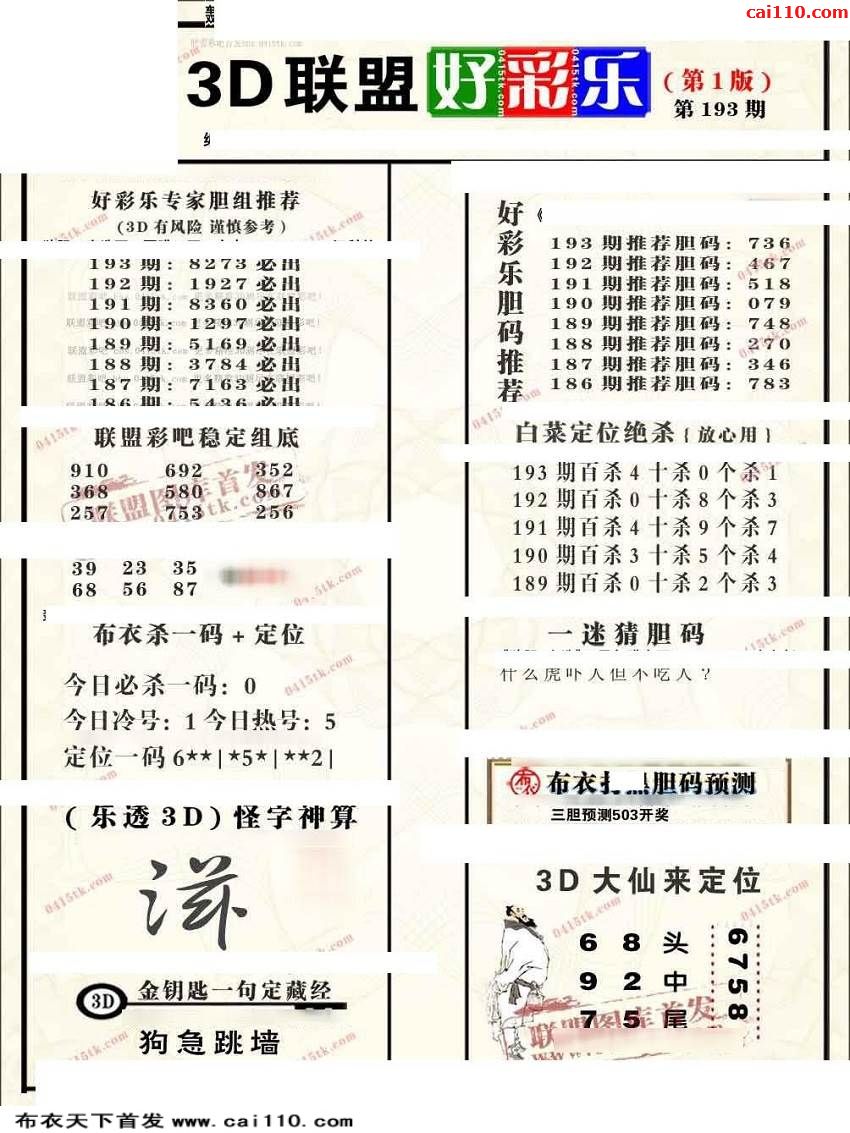 cai110.com
3D联盟好彩乐
(第1版)
第193期
好彩乐专家胆组推荐
(3D有风险 谨慎参考)
193期: 8273必出
192期: 1927必出
191期: 8360必出
190期: 1297必出
189期: 5169必出
188期: 3784必出
187期: 7163必出
186期: 5436必出
联盟彩吧稳定组底
910 692 352
368 580 867
257 753 256
39 23 35
68 56 87
布衣杀一码+定位
今日必杀一码: 0
今日冷号: 1 今日热号: 5
定位一码 6**|*5*|**2|
(乐透3D)怪字神算
3D 金钥匙一句定藏经
狗急跳墙
好彩乐胆码推荐
193期推荐胆码: 736
192期推荐胆码: 467
191期推荐胆码: 518
190期推荐胆码: 079
189期推荐胆码: 748
188期推荐胆码: 270
187期推荐胆码: 346
186期推荐胆码: 783
白菜定位绝杀{放心用}
193期百杀4十杀0个杀1
192期百杀0十杀8个杀3
191期百杀4十杀9个杀7
190期百杀3十杀5个杀4
189期百杀0十杀2个杀3
一迷猜胆码
什么虎吓人但不吃人?
布衣 胆码预测
三胆预测503开奖
3D大仙来定位
6 8 头
9 2 中
7 5 尾
6758
联盟图库首发
0415tk.com
布衣天下首发 www.cai110.com